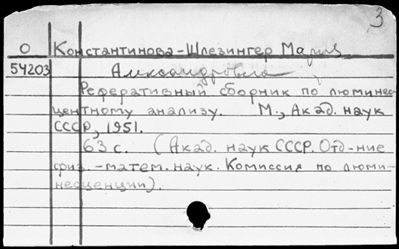 3
О Константинова-Шлезингер Мария
54203 Александровна
Реферативный сборник по люминес-
центному анализу. М., Акад. наук
СССР, 1951.
63 с. (Акад. наук СССР. Отд-ние
физ.-матем. наук. Комиссия по люми-
несценции).